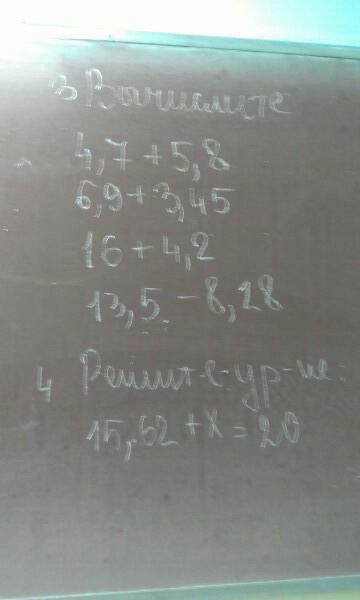 3 Вычислите
4,7 + 5,8
6,9 + 3,45
16 + 4,2
13,5 - 8,28
4 Решите ур-ие:
15,62 + x = 20